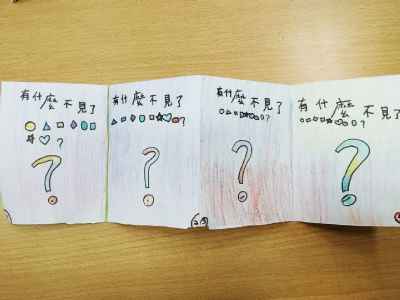 有什麼不見了
?
?
有什麼不見了
?
?
有什麼不見了
?
?
有什麼不見了
?
?